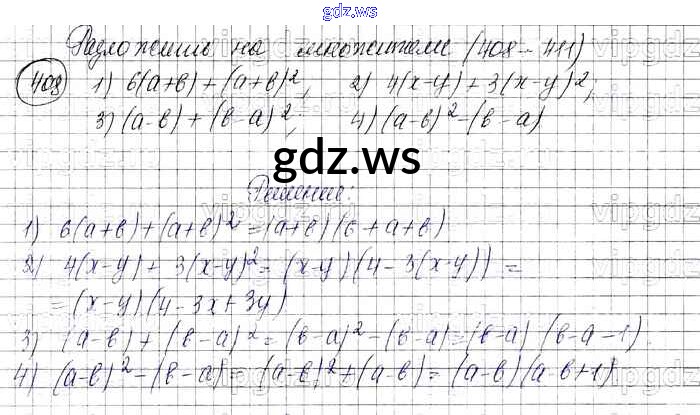 gdz.ws
Разложить на множители (408 - 411)
408 1) 6(a+b) + (a+b)², 2) 4(x-y) + 3(x-y)²,
3) (a-b) + (b-a)², 4) (a-b)² - (b-a)
gdz.ws
Решение:
1) 6(a+b) + (a+b)² = (a+b)(6+a+b)
2) 4(x-y) + 3(x-y)² = (x-y)(4-3(x-y)) =
= (x-y)(4-3x+3y)
3) (a-b) + (b-a)² = (b-a)² - (b-a) = (b-a)(b-a-1)
4) (a-b)² - (b-a) = (a-b)² + (a-b) = (a-b)(a-b+1)
gdz.ws